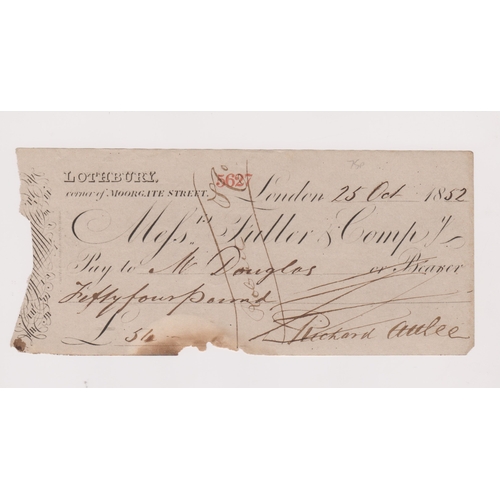 LOTHBURY,
corner of MOORGATE STREET.
5627
London 25 Oct 1852
Mess.rs Fuller & Comp.y
Pay to Mr Douglas or Bearer
Fifty four pound
£ 54
Richard